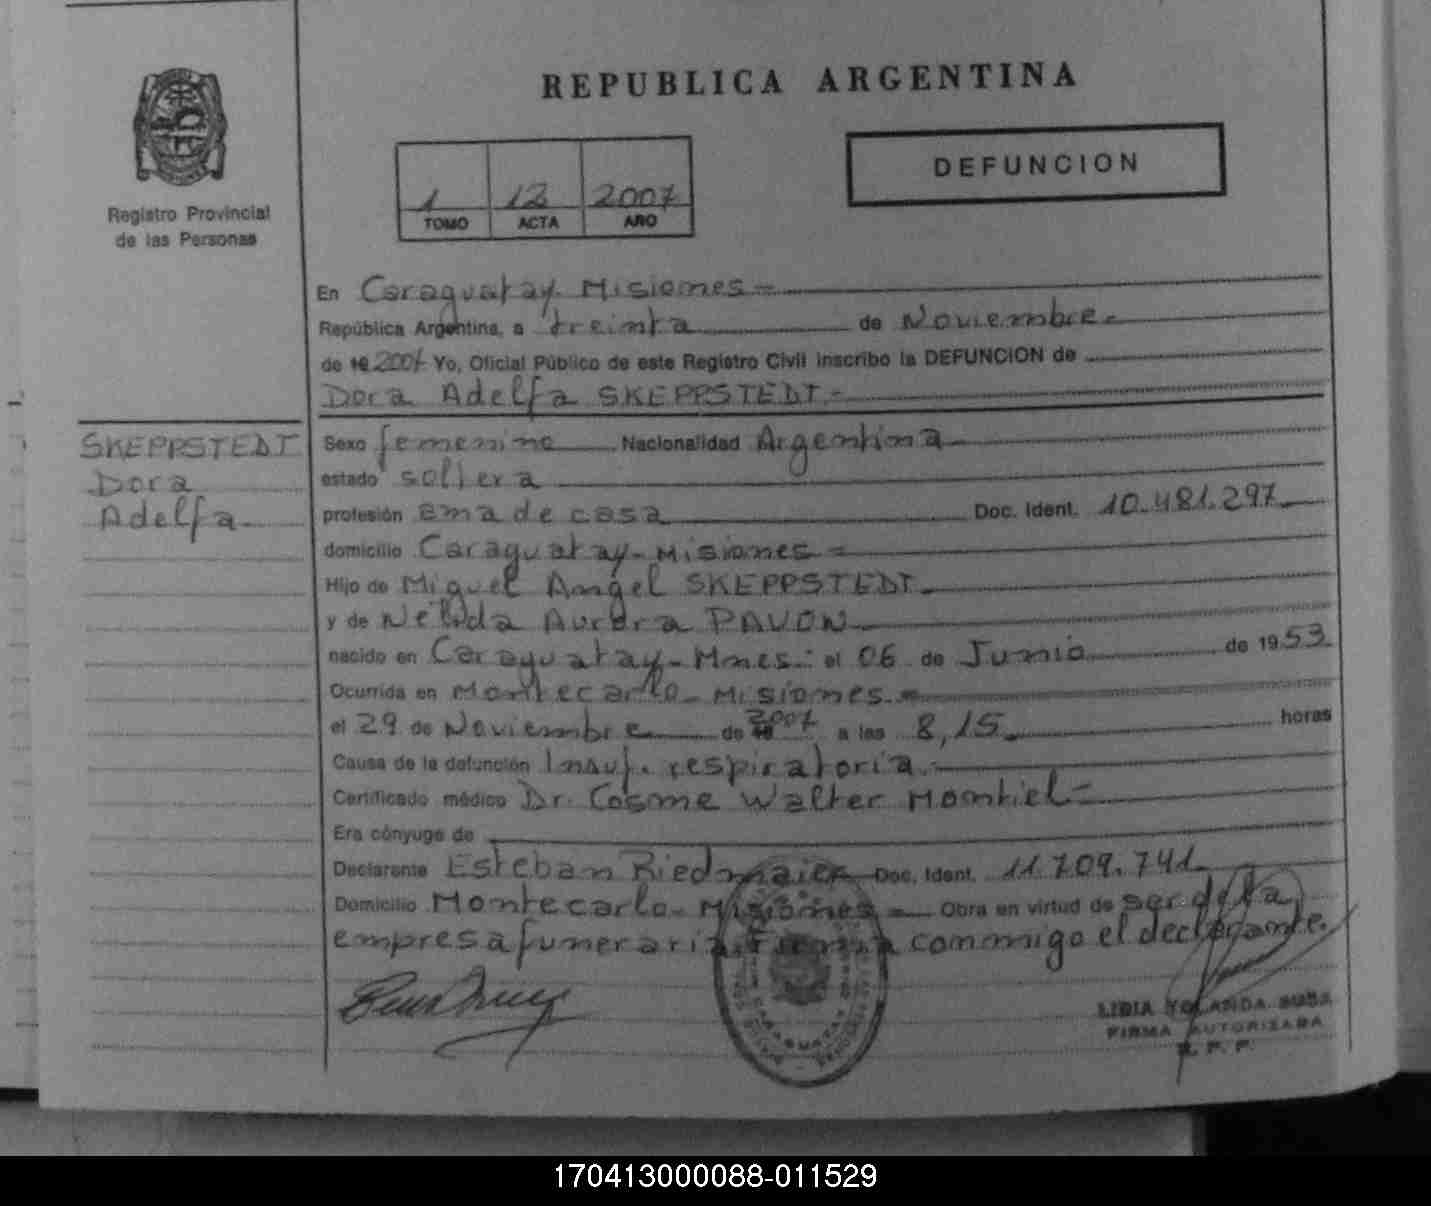 REPUBLICA ARGENTINA
DEFUNCION
1 12 2007
TOMO ACTA AÑO
Registro Provincial
de las Personas
En Caraguatay Misiones
República Argentina, a treinta de Noviembre
de 19 2007 Yo, Oficial Público de este Registro Civil inscribo la DEFUNCION de
Dora Adelfa SKEPPSTEDT.
SKEPPSTEDT
Dora
Adelfa
Sexo femenino Nacionalidad Argentina
estado soltera
profesión ama de casa Doc. Ident. 10.481.297
domicilio Caraguatay - Misiones
Hijo de Miguel Angel SKEPPSTEDT
y de Nélida Aurora PAVON
nacido en Caraguatay - Mnes. el 06 de Junio de 1953
Ocurrida en Montecarlo - Misiones
el 29 de Noviembre de 19 2007 a las 8,15 horas
Causa de la defunción Insuf. respiratoria.
Certificado médico Dr. Cosme Walter Montiel
Era cónyuge de
Declarante Esteban Riedmaier Doc. Ident. 11.709.741
Domicilio Montecarlo - Misiones Obra en virtud de ser de la
empresa funeraria. Firma conmigo el declarante.
LIDIA YOLANDA SUSA
FIRMA AUTORIZADA
R. P. P.
170413000088-011529